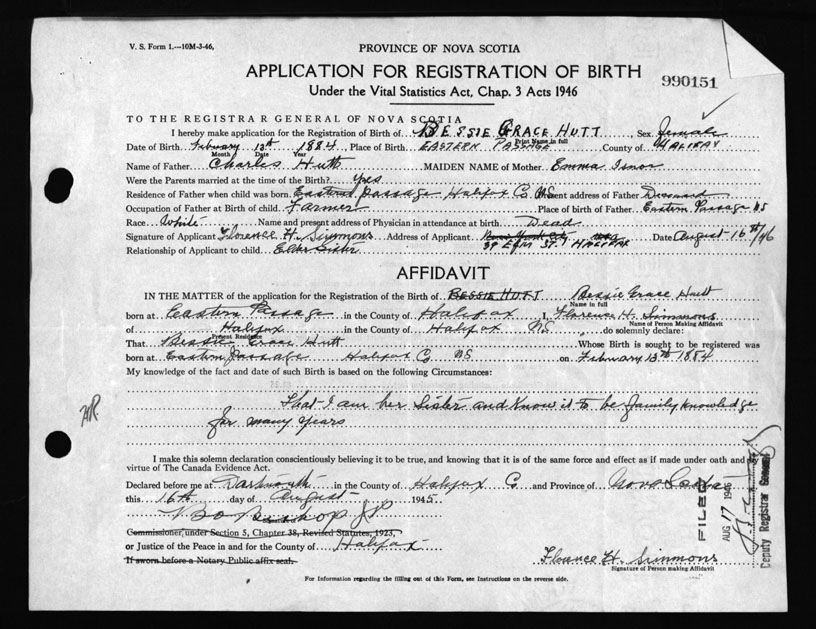 V. S. Form 1.—10M-3-46,
PROVINCE OF NOVA SCOTIA
APPLICATION FOR REGISTRATION OF BIRTH
990151
Under the Vital Statistics Act, Chap. 3 Acts 1946
TO THE REGISTRAR GENERAL OF NOVA SCOTIA
I hereby make application for the Registration of Birth of BESSIE GRACE HUTT Sex female
Print Name in full
Date of Birth February 13th 1884, Place of Birth EASTERN PASSAGE County of HALIFAX
Month Date Year
Name of Father Charles Hutt MAIDEN NAME of Mother Emma Isnor
Were the Parents married at time of the Birth? Yes
Residence of Father when child was born Eastern Passage Halifax Co. NS Present address of Father Deceased
Occupation of Father at Birth of child Farmer Place of birth of Father Eastern Passage NS
Race White Name and present address of Physician in attendance at birth Dead
Signature of Applicant Florence H. Simmons Address of Applicant 39 EDM ST. HALIFAX Date August 16th/46
Relationship of Applicant to child Elder Sister
AFFIDAVIT
IN THE MATTER of the application for the Registration of the Birth of BESSIE HUTT Bessie Grace Hutt
Name in full
born at Eastern Passage in the County of Halifax I, Florence H. Simmons
Name of Person Making Affidavit
of Halifax in the County of Halifax NS do solemnly declare:
Present Residence
That Bessie Grace Hutt Whose Birth is sought to be registered was
born at Eastern Passage Halifax Co NS on February 13th 1884
My knowledge of the fact and date of such Birth is based on the following Circumstances:
That I am her Sister and know it to be family knowledge
for many years
I make this solemn declaration conscientiously believing it to be true, and knowing that it is of the same force and effect as if made under oath and by
virtue of The Canada Evidence Act.
Declared before me at Dartmouth in the County of Halifax Co and Province of Nova Scotia
this 16th day of August 1945
Bishop JP
Commissioner, under Section 5, Chapter 38, Revised Statutes, 1923,
or Justice of the Peace in and for the County of Halifax
If sworn before a Notary Public affix seal.
Florence H. Simmons
Signature of Person making Affidavit
For Information regarding the filling out of this Form, see Instructions on the reverse side.
FILED
AUG 17 1946
Deputy Registrar General